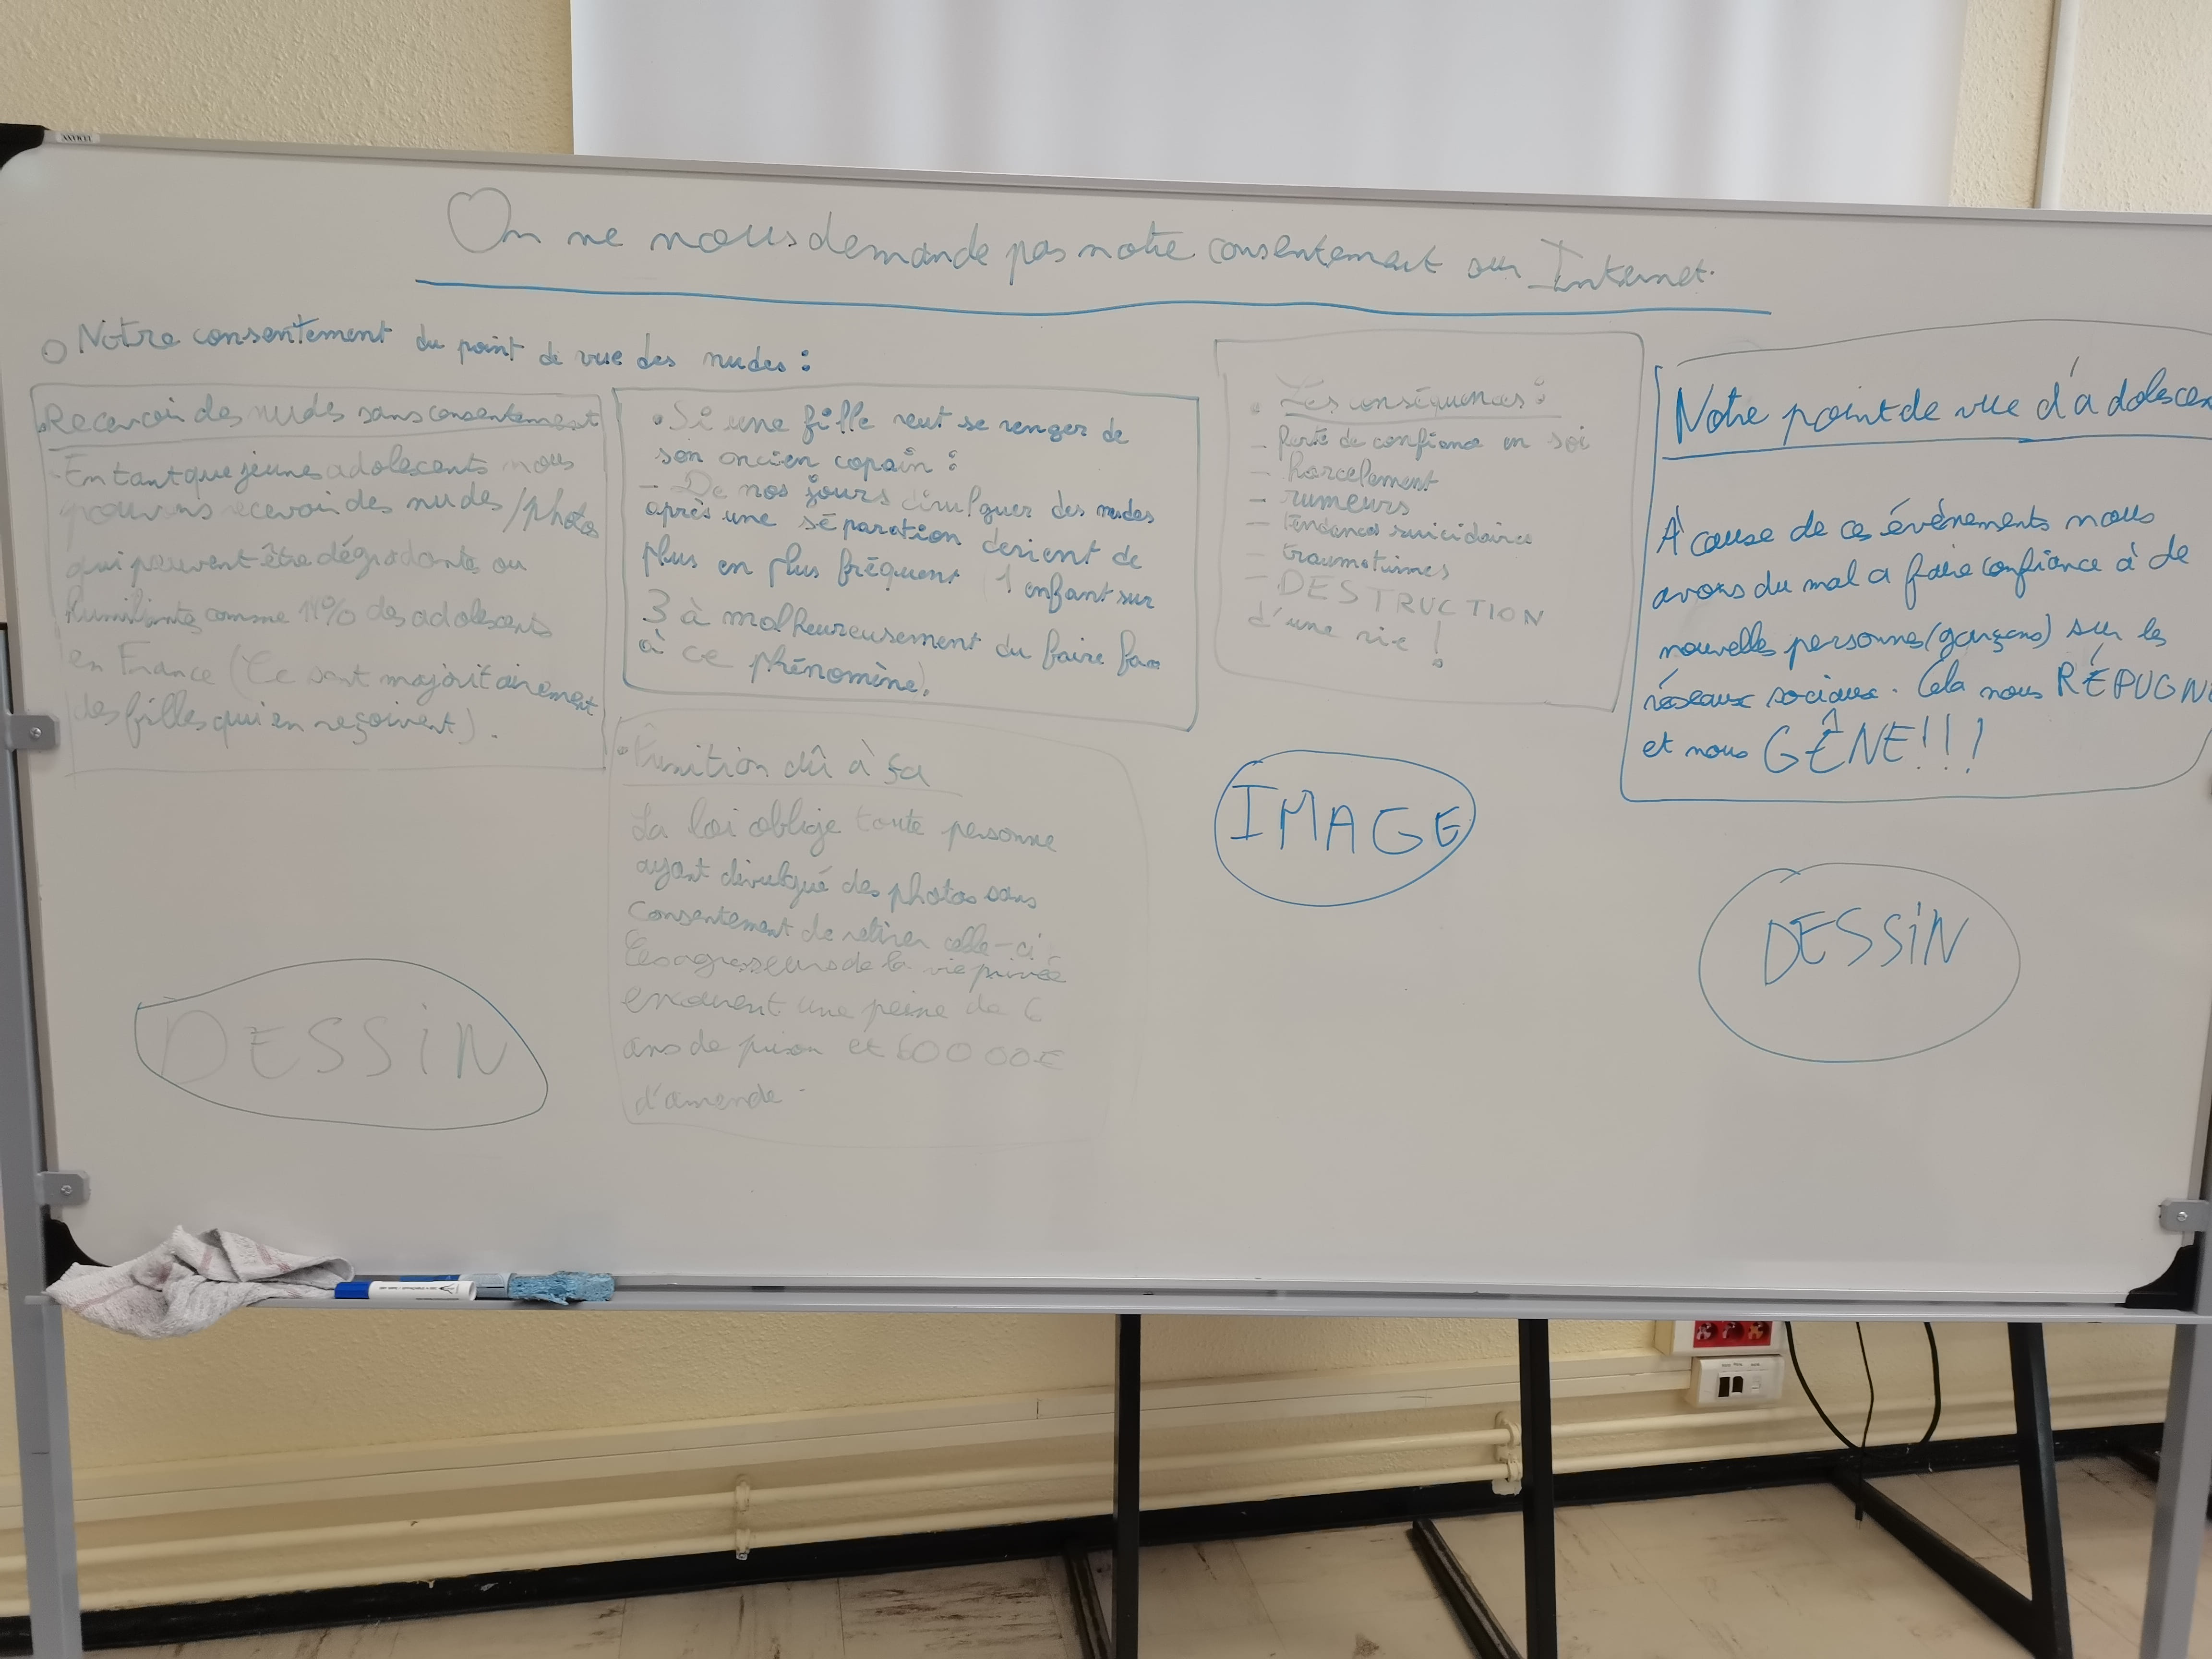 On ne nous demande pas notre consentement sur Internet.
Notre consentement du point de vue des nudes :
Recevoir des nudes sans consentement
- En tant que jeunes adolescents nous
pouvons recevoir des nudes / photos
qui peuvent être dégradants ou
humiliants comme 11% des adolescents
en France (Ce sont majoritairement
des filles qui en reçoivent).
• Si une fille veut se venger de
son ancien copain :
- De nos jours divulguer des nudes
après une séparation devient de
plus en plus fréquent (1 enfant sur
3 à malheureusement du faire face
à ce phénomène).
• Punition dû à sa
La loi oblige toute personne
ayant divulgué des photos sans
consentement de retirer celle-ci
Les agresseurs de la vie privée
encourent une peine de
ans de prison et
d'amende.
• Les conséquences :
- Perte de confiance en soi
- harcelement
- rumeurs
- tendances suicidaires
- traumatismes
- DESTRUCTION
d'une vie !
Notre point de vue d'adolescen
À cause de ces événements nous
avons du mal a faire confiance à de
nouvelle personnes (garçons) sur les
réseaux sociaux. Cela nous RÉPUGNE
et nous GÊNE!!!
IMAGE
DESSiN
DESSiN